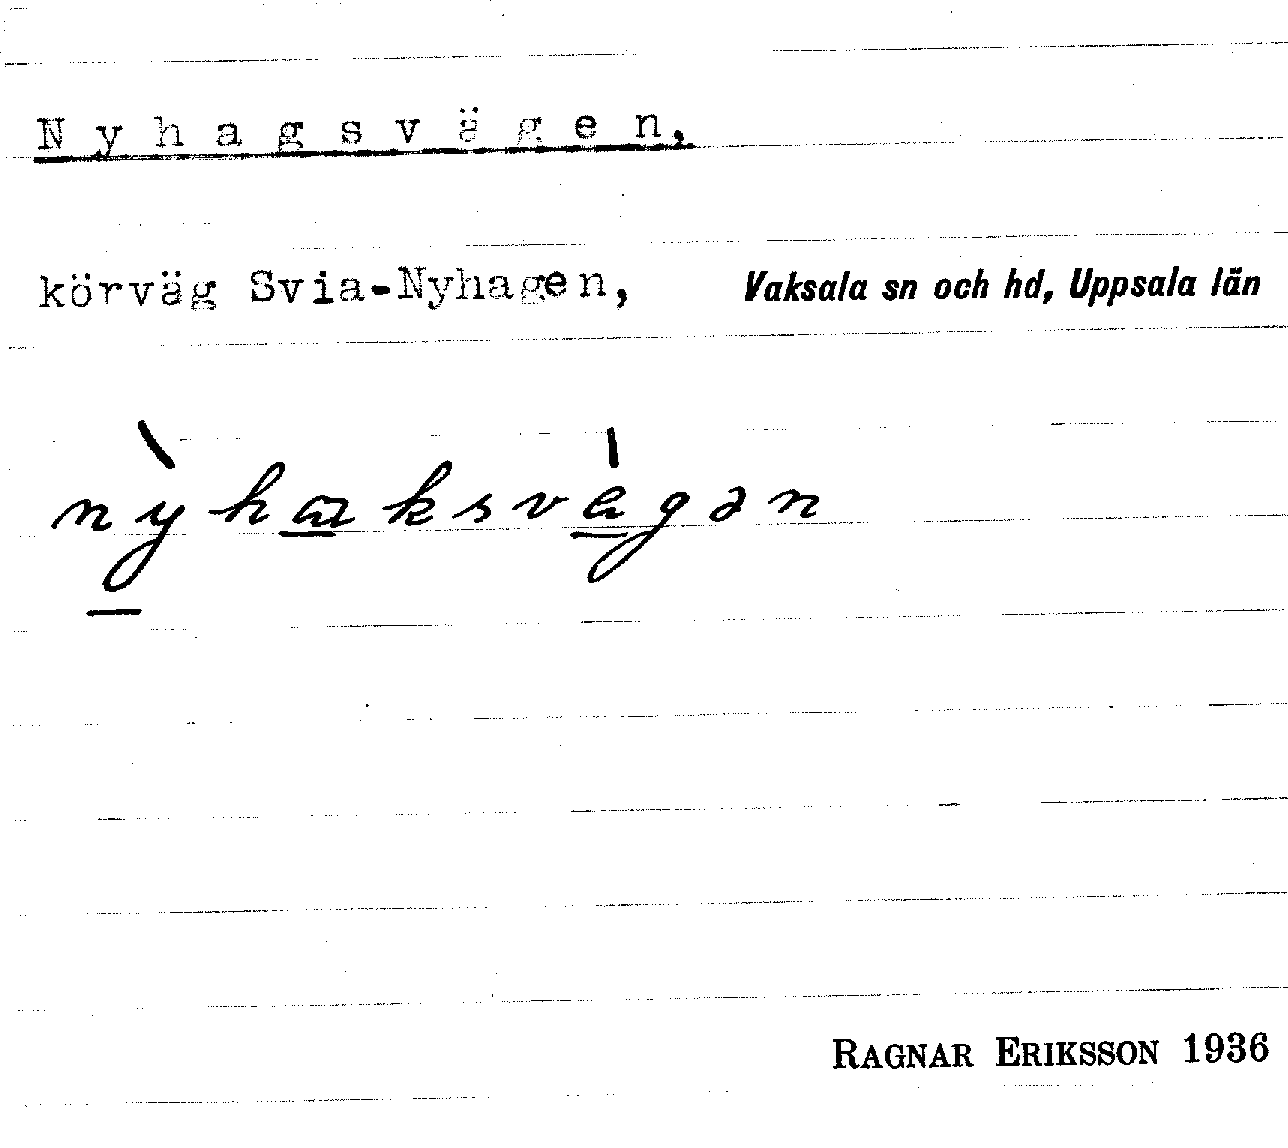 Nyhagsvägen,
körväg Svia-Nyhagen, Vaksala sn och hd, Uppsala län
RAGNAR ERIKSSON 1936